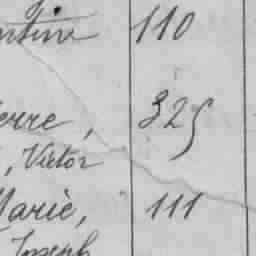 110
erre, 325
, Victor
Marie, 111
Joseph